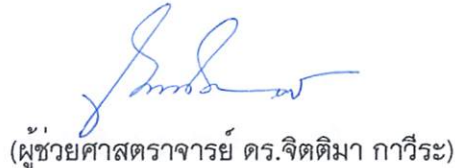 (ผู้ช่วยศาสตราจารย์ ดร.จิตติมา กาวีระ)